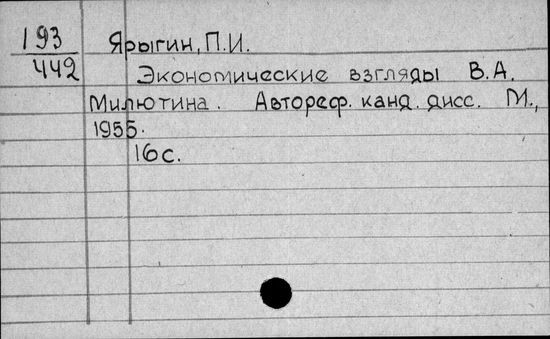 193
442
Ярыгин, П.И.
Экономические взгляды В.А.
Милютина. Автореф. канд. дисс. М.,
1955.
16с.